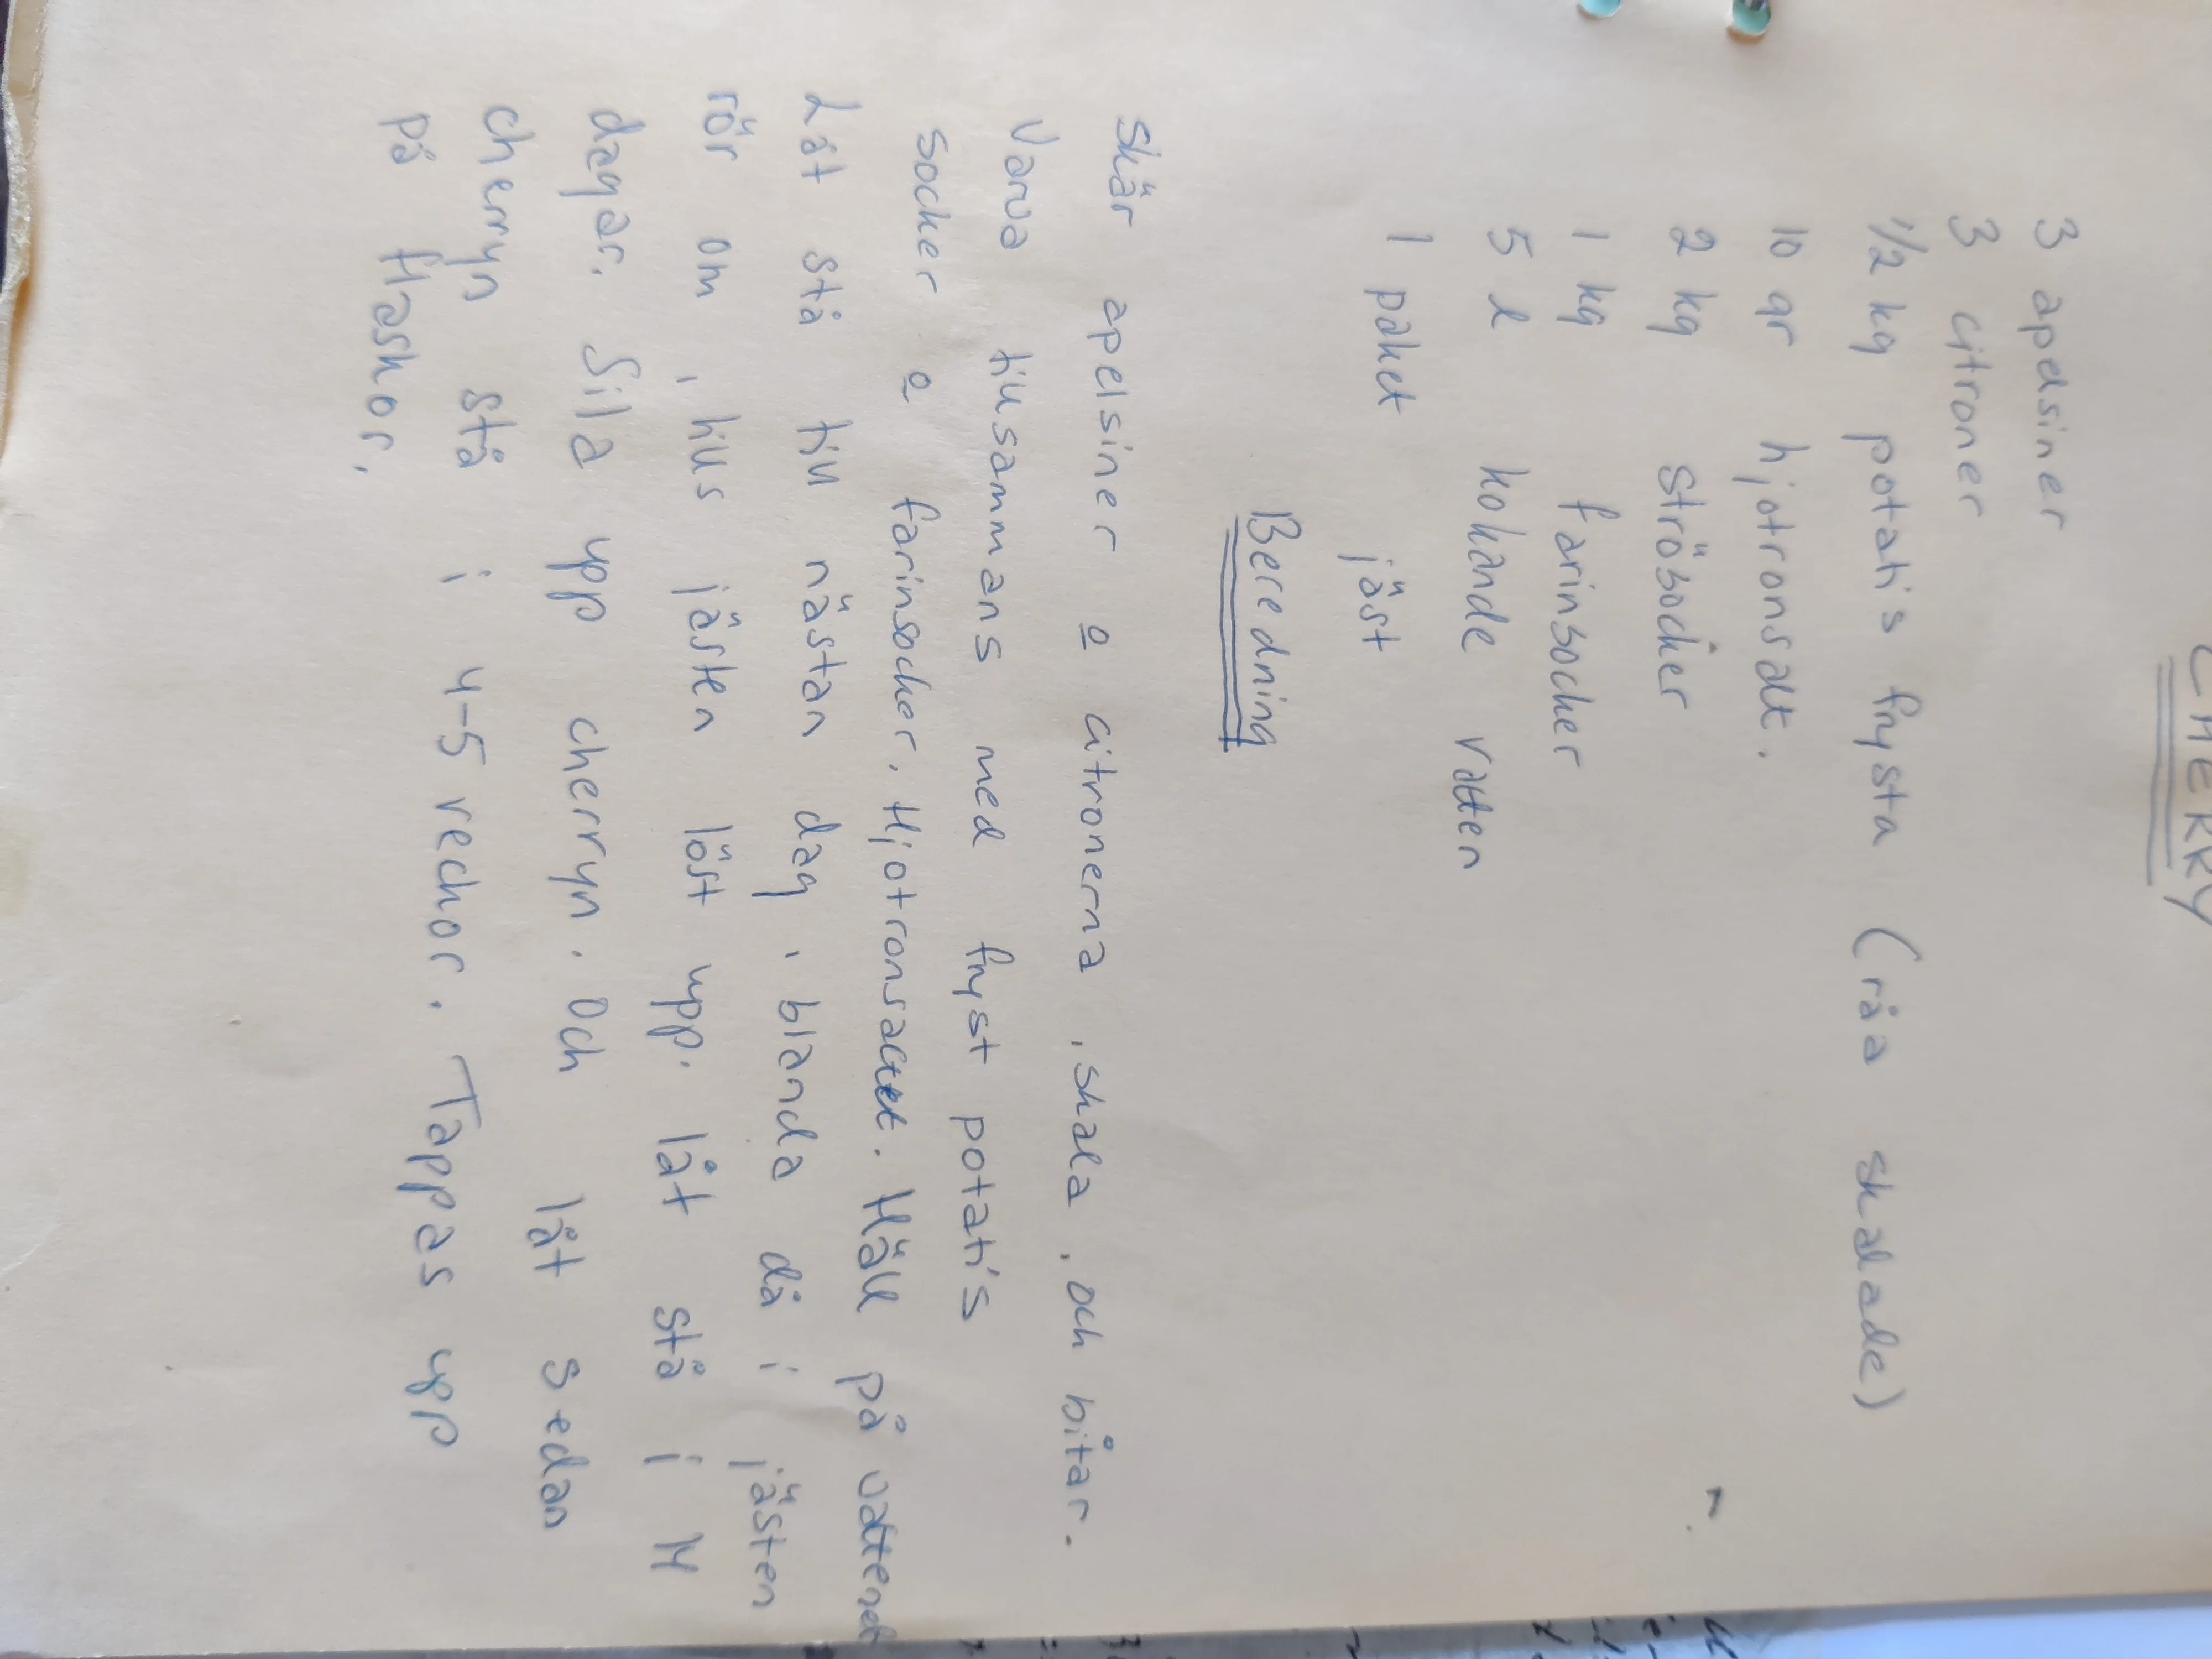 CHERRY
3 apelsiner
3 citroner
1/2 kg potatis frysta (råa skalade)
10 gr hjotronsalt.
2 kg strösocker
1 kg farinsocker
5 l kokande vatten
1 paket jäst
Beredning
Skär apelsiner o citronerna, skala, och bitar.
Varva tillsammans med fryst potatis
socker o farinsocker. Hjotronsaltet. Häll på vattenet
Låt stå till nästan dag, blanda då i jästen
rör om, tills jästen löst upp. låt stå i 14
dagar. Sila upp cherryn. Och låt sedan
cherryn stå i 4-5 veckor. Tappas upp
på flaskor.